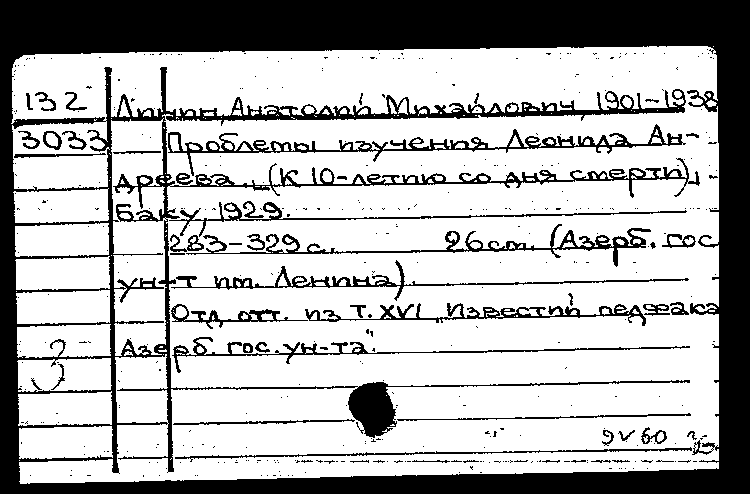 132 Линин, Анатолий Михайлович, 1901-1938
3033 Проблемы изучения Леонида Ан-
дреева. (К 10-летию со дня смерти).
Баку, 1929.
283-329 с. 26 см. (Азерб. гос
ун-т им. Ленина).
Отд. отт. из т. XVI „Известий педфака
Азерб. гос. ун-та".
3
9 V 60